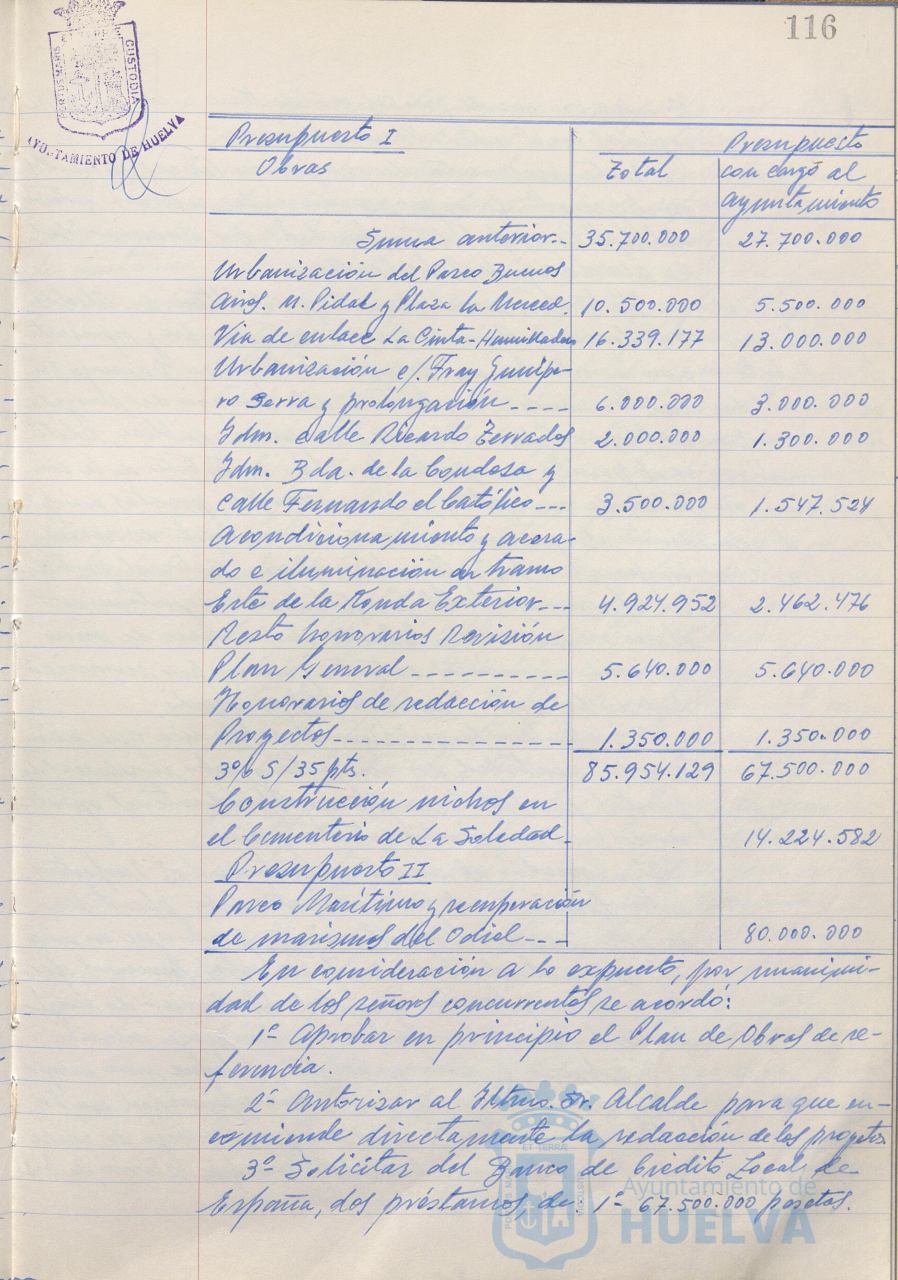 116
PORTUS MARIS ET TERRE CUSTODIA
AYUNTAMIENTO DE HUELVA
Presupuesto I Presupuesto
Obras Total con cargo al
ayuntamiento
Suma anterior.. 35.700.000 27.700.000
Urbanización del Paseo Buenos
Aires. M. Pidal y Plaza la Merced. 10.500.000 5.500.000
Via de enlace La Cinta-Humilladero 16.339.177 13.000.000
Urbanización c/. Fray Junípe-
ro Serra y prolongación ---- 6.000.000 3.000.000
Idm. calle Ricardo Terrades 2.000.000 1.300.000
Idm. Bda. de la
calle Fernando el Católico--- 3.500.000 1.547.524
Acondicionamiento y acera-
do e iluminación en tramo
Este de la Ronda Exterior--- 4.924.952 2.462.476
Resto honorarios Revisión
Plan General ---------- 5.640.000 5.640.000
Honorarios de redacción de
Proyectos--------------- 1.350.000 1.350.000
3% S/35 pts. 85.954.129 67.500.000
Construcción nichos en
el Cementerio de La Soledad. 14.224.582
Presupuesto II
Paseo Marítimo y recuperación
de marismas del Odiel--- 80.000.000
En consideración a lo expuesto, por unanimi-
dad de los señores concurrentes se acordó:
1º- Aprobar en principio el Plan de Obras de re-
ferencia.
2º- Autorizar al Iltmo. Sr. Alcalde para que en-
comiende directamente la redacción de los proyectos
3º- Solicitar del Banco de Crédito Local de
España, dos préstamos, de: 1º- 67.500.000 pesetas.
Ayuntamiento de
HUELVA